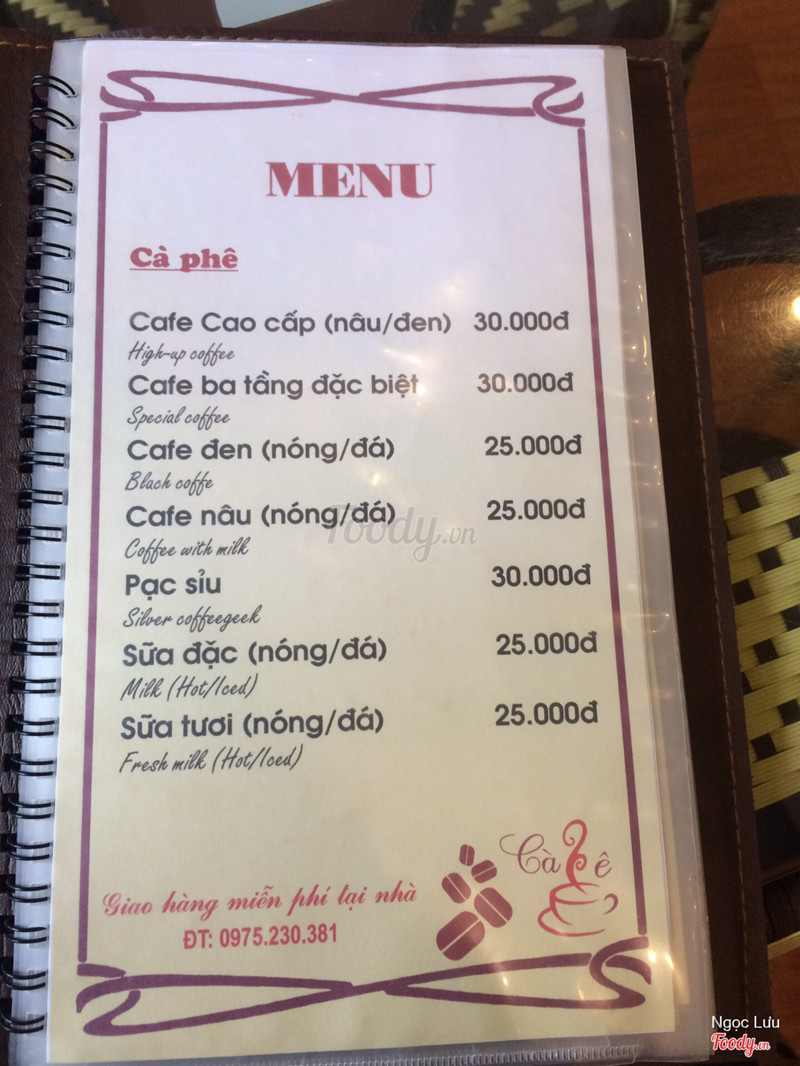 MENU
Cà phê
Cafe Cao cấp (nâu/đen) 30.000đ
High-up coffee
Cafe ba tầng đặc biệt 30.000đ
Special coffee
Cafe đen (nóng/đá) 25.000đ
Blach coffe
Cafe nâu (nóng/đá) 25.000đ
Foody.vn
Coffee with milk
Pạc sỉu 30.000đ
Silver coffeegeek
Sữa đặc (nóng/đá) 25.000đ
Milk (Hot/Iced)
Sữa tươi (nóng/đá) 25.000đ
Fresh milk (Hot/Iced)
Cà fê
Giao hàng miễn phí tại nhà
ĐT: 0975.230.381
Ngọc Lưu
Foody.vn